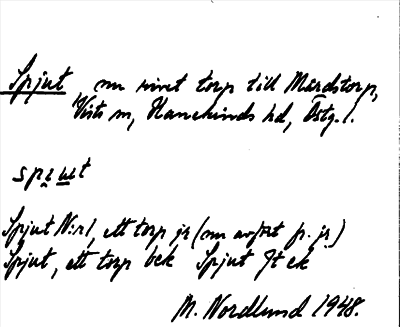 Spjut nu rivet torp till Mårdstorp,
Vists sn, Hanekinds hd, Östg. l.
spɪʉt
Spjut N:r 1, ett torp jr (nu avfört fr. jr)
Spjut, ett torp bek Spjut Jt ek
M. Nordlund 1948.